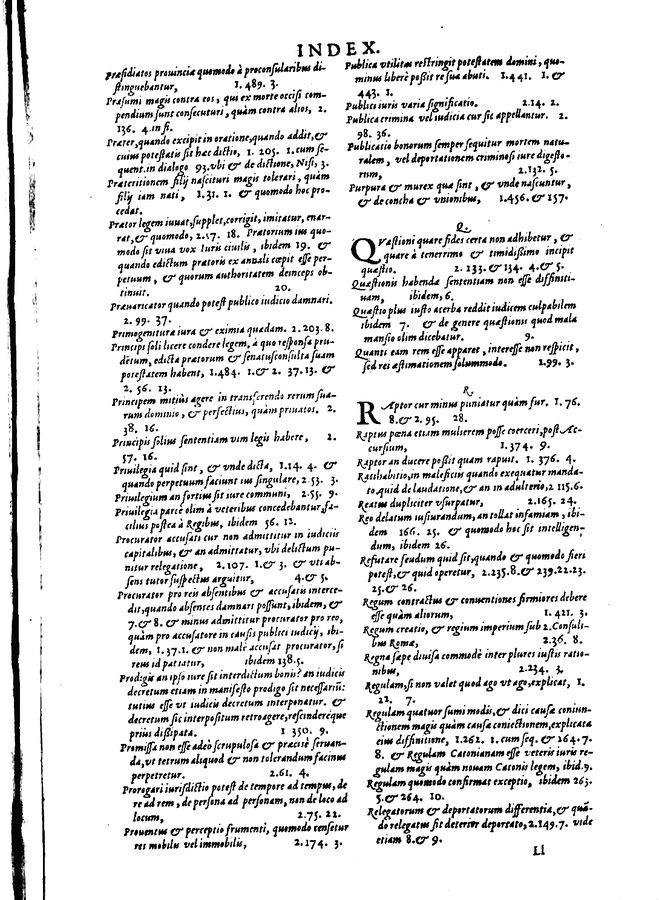 INDEX.
Præsidiatos prouincia quomodo à proconsularibus di-
stinguebantur, 1. 489. 3.
Præsumi magis contra eos, qui ex morte occisi com-
pendium sunt consecuturi, quàm contra alios, 2.
136. 4. in fi.
Præter, quando excipit in oratione, quando addit, &
cuius potestatis sit hæc dictio, 1. 205. 1. cum se-
quent. in dialogo 93. vbi & de dictione, Nisi, 3.
Præteritionem filij nascituri magis tolerari, quàm
filij iam nati, 1. 31. 1. & quomodo hoc pro-
cedat.
Prætor legem iuuat, supplet, corrigit, imitatur, enar-
rat, & quomodo, 2. 17. 18. Prætorium ius quo-
modo sit viua vox iuris ciuilis, ibidem 19. &
quando edictum prætoris ex annali cœpit esse per-
petuum, & quorum authoritatem deinceps ob-
tinuit. 20.
Præuaricator quando potest publico iudicio damnari.
2. 99. 37.
Primogenitura iura & eximia quædam. 2. 203. 8.
Principi soli licere condere legem, à quo responsa pru-
dētum, edicta prætorum & senatusconsulta suam
potestatem habent, 1. 484. 1. & 2. 37. 13. &
2. 56. 13.
Principem mitius agere in transferendo rerum sua-
rum dominio, & perfectius, quàm priuatos. 2.
38. 16.
Principis solius sententiam vim legis habere, 2.
57. 16.
Priuilegia quid sint, & vnde dicta, 1. 14. 4. &
quando perpetuum faciunt ius singulare, 2. 53. 3.
Priuilegium an fortius sit iure communi, 2. 55. 9.
Priuilegia parce olim à veteribus concedebantur, fa-
cilius posteà à Regibus, ibidem 56. 12.
Procurator accusati cur non admittitur in iudiciis
capitalibus, & an admittatur, vbi delictum pu-
nitur relegatione, 2. 107. 1. & 3. & vti ab-
sens tutor suspectus arguitur, 4. & 5.
Procurator pro reis absentibus & accusatis interce-
dit, quando absentes damnari possunt, ibidem, &
7. & 8. & minus admittitur procurator pro reo,
quàm pro accusatore in causis publici iudicij, ibi-
dem, 1. 37. 1. & non malè accusat procurator, si
reus id patiatur, ibidem 138. 5.
Prodigis an ipso iure sit interdictum bonis? an iudicis
decretum etiam in manifesto prodigo sit necessariū:
tutius esse vt iudicis decretum interponatur. &
decretum sic interpositum retroagere, rescindereque
priùs dissipata. 1 350. 9.
Promissa non esse adeò scrupulosa & præcisè seruan-
da, vt tetrum aliquod & non tolerandum facinus
perpetretur. 2. 61. 4.
Prorogari iurisdictio potest de tempore ad tempus, de
re ad rem, de persona ad personam, non de loco ad
locum, 2. 75. 22.
Prouentus & perceptio frumenti, quomodo censetur
res mobilis vel immobilis, 2. 174. 3.
Publica vtilitas restringit potestatem domini, quo-
minus liberè possit re sua abuti. 1. 441. 1. &
443. 1.
Publici iuris varia significatio. 2. 14. 2.
Publica crimina vel iudicia cur sic appellantur. 2.
98. 36.
Publicatio bonorum semper sequitur mortem natu-
ralem, vel deportationem criminosi iure digesto-
rum, 2. 132. 5.
Purpura & murex quæ sint, & vnde nascuntur,
& de concha & vnionibus, 1. 456. & 157.
Q.
QVæstioni quare fides certa non adhibetur, &
quare à tenerrimo & timidissimo incipit
quæstio. 2. 233. & 134. 4. & 5.
Quæstionis habendæ sententiam non esse diffiniti-
uam, ibidem, 6.
Quæstio plus iusto acerba reddit iudicem culpabilem
ibidem 7. & de genere quæstionis quod mala
mansio olim dicebatur. 9.
Quanti eam rem esse apparet, interesse non respicit,
sed rei æstimationem solummodo. 1. 99. 3.
R.
RAptor cur minus puniatur quàm fur. 1. 76.
8. & 2. 95. 28.
Raptus pœna etiam mulierem posse coerceri, post Ac-
cursium, 1. 374. 9.
Raptor an ducere possit quam rapuit. 1. 376. 4.
Ratihabitio, in maleficiis quando exequatur manda-
to, quid de laudatione, & an in adulterio, 2 115. 6.
Reatus dupliciter vsurpatur, 2. 165. 24.
Reo delatum iusiurandum, an tollat infamiam, ibi-
dem 166. 25. & quomodo hoc sit intelligen-
dum, ibidem 26.
Refutare feudum quid sit, quando & quomodo fieri
potest, & quid operetur, 2. 235. 8. & 239. 22. 23.
25. & 26.
Regum contractus & conuentiones firmiores debere
esse quàm aliorum, 1. 421. 3.
Regum creatio, & regium imperium sub 2. Consuli-
bus Romæ, 2. 36. 8.
Regna sæpe diuisa commodè inter plures iustis ratio-
nibus, 2. 234. 3.
Regulam, si non valet quod ago vt ago, explicat, 1.
22. 7.
Regulam quatuor sumi modis, & dici causæ coniun-
ctionem magis quàm causæ coniectionem, explicata
eius diffinitione, 1. 262. 1. cum seq. & 264. 7.
8. & Regulam Catonianam esse veteris iuris re-
gulam magis quàm nouam Catonis legem, ibid. 9.
Regulam quomodo confirmat exceptio, ibidem 263.
5. & 264. 10.
Relegatorum & deportatorum differentia, & quā-
do relegatus sit deterior deportato, 2. 149. 7. vide
etiam 8. & 9.
Ll